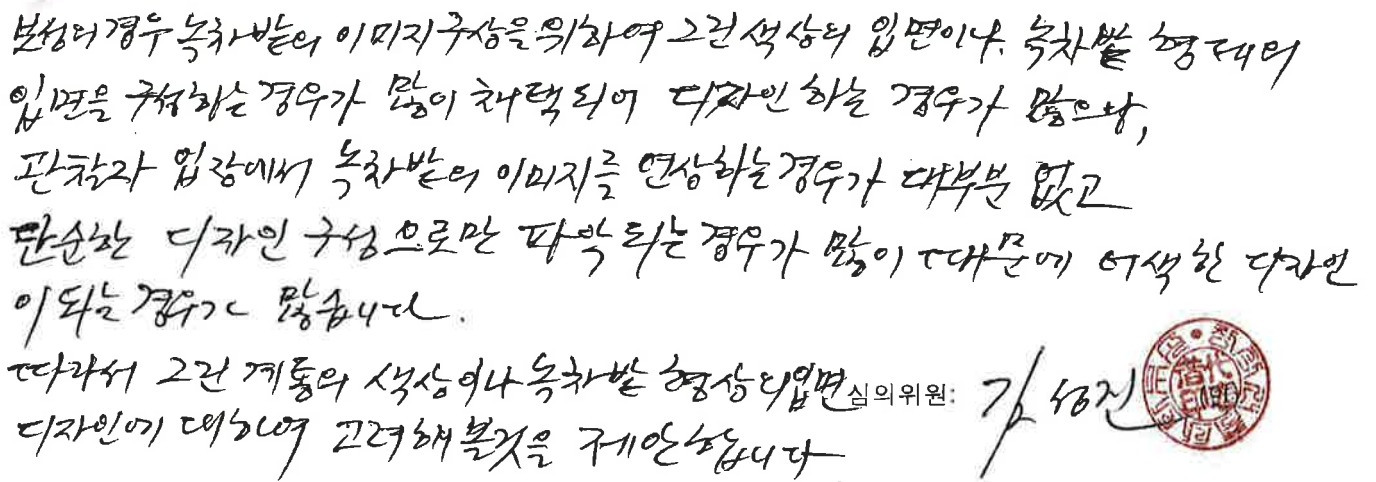 보성의 경우 녹차밭의 이미지 구상을 위하여 그린 색상의 입면이나 녹차밭 형태의
입면을 구성하는 경우가 많이 채택되어 디자인 하는 경우가 많으나,
관찰자 입장에서 녹차밭의 이미지를 연상하는 경우가 대부분 없고
단순한 디자인 구성으로만 파악되는 경우가 많이 때문에 어색한 디자인
이 되는 경우가 많습니다.
따라서 그린 계통의 색상이나 녹차밭 형상의 입면
디자인에 대하여 고려해 볼것을 제안합니다
심의위원: 김성진 (인)